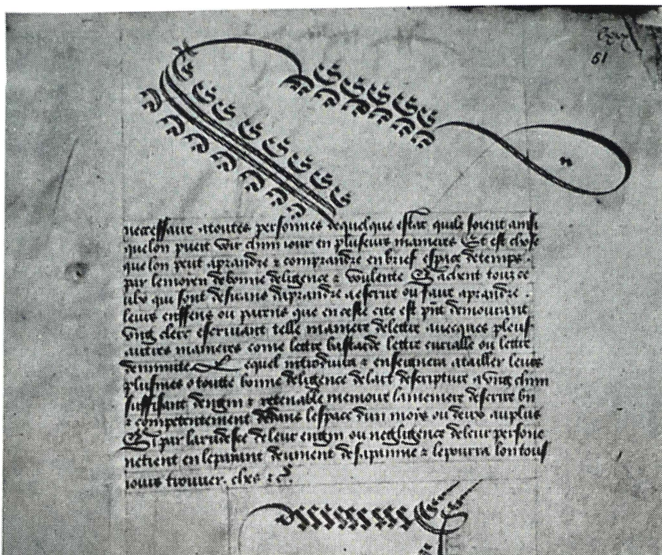 51
necessaire atoutes personnes dequelque estat quilz soient ainsi
quelon puest voir chun iour en plusieurs manieres Et est chose
que lon peut aprandre & comprandre en brief espace detemps
par lemoyen debonne deligence & voulente Sachent tous ce
ulx qui sont desirans daprandre aescrire ou faire aprandre
leurs enffens ou parens que en ceste cite est pnt demourant
vng clerc escripuant telle maniere delettre auecques pleus
autres manieres come lettre bastarde lettre curialle ou lettre
deminute Lequel introduira & enseignera atailler leurs
plusmes & toutte bonne deligence delart descripture a vng chun
suffisant dengin & retenable memoire lamaniere descrire bn
& competentement dedans lespace dun mois ou deux auplus
Et par larudesse deleur engin ou negligence deleur persone
netient en leparant deument desapanne & lepourra lon tous
iours trouuer. ches &c.